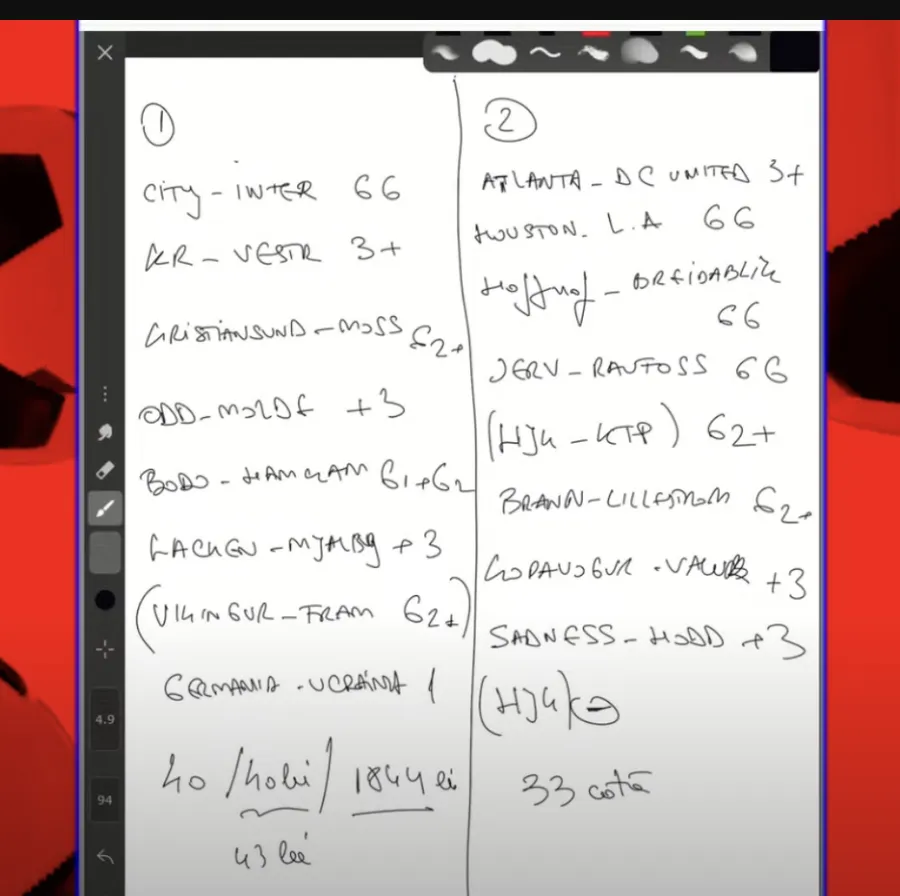 ①
CITY - INTER GG
KR - VESTR 3+
KRISTIANSUND - MOSS G2+
ODD - MOLDE +3
BODO - HAMKAM G1+G2
HACKEN - MJALBY +3
(VIKINGUR - FRAM G2+)
GERMANIA - UCRAINA 1
40 /40 lei/ 1844 lei
43 lei
②
ATLANTA - DC UNITED 3+
HOUSTON - L.A GG
- BREIDABLIK
GG
JERV - RAUFOSS GG
(HJK - KTP) G2+
BRANN - LILLESTROM G2+
KOPAVOGUR - +3
SADNESS - HODD +3
(HJK)
33 cotă
4.9
94